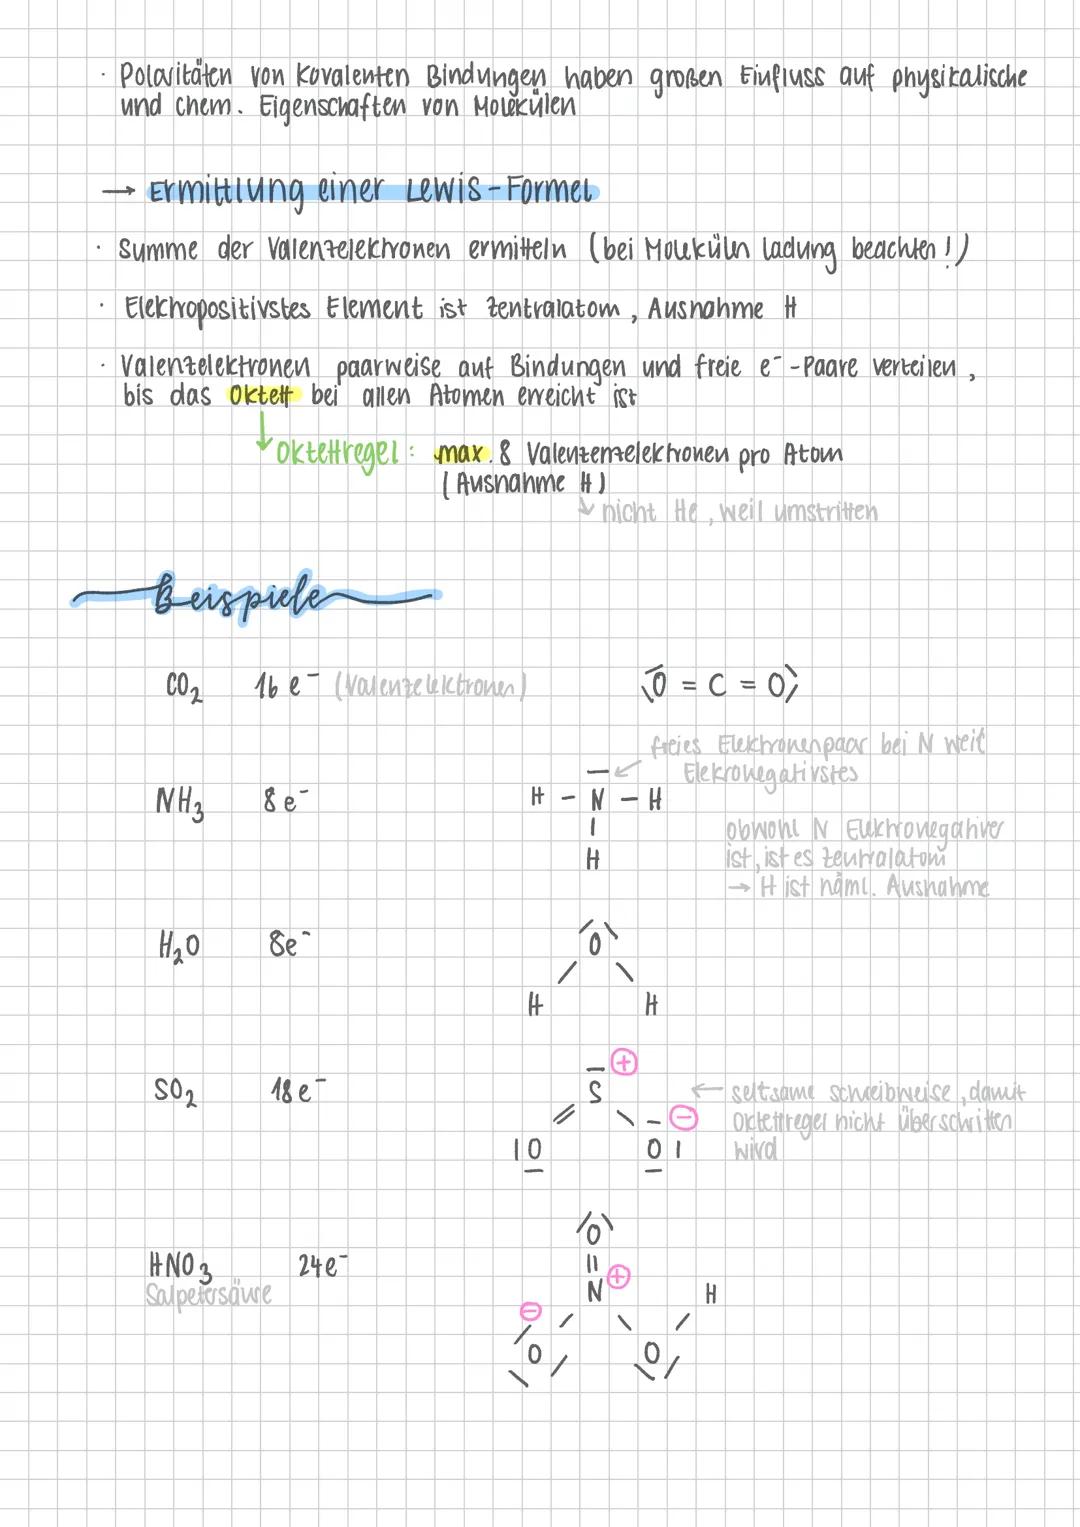 · Polaritäten von Kovalenten Bindungen haben großen Einfluss auf physikalische
und chem. Eigenschaften von Molekülen
→ Ermittlung einer Lewis-Formel
· Summe der Valenzelektronen ermitteln (bei Moleküln ladung beachten!)
· Elektropositivstes Element ist Zentralatom, Ausnahme H
· Valenzelektronen paarweise auf Bindungen und freie e⁻-Paare verteilen,
bis das Oktett bei allen Atomen erreicht ist
Oktettregel: max. 8 Valenzenzelektronen pro Atom
(Ausnahme H)
nicht He, weil umstritten
Beispiele
CO₂ 16 e⁻ (Valenzelektronen) O = C = O
freies Elektronenpaar bei N weil
Elekronegativstes
NH₃ 8 e⁻ H – N – H
H
obwohl N Elektronegativer
ist, ist es Zentralatom
→ H ist näml. Ausnahme
H₂O 8e⁻ O
H H
SO₂ 18 e⁻ S ⊕
← seltsame schreibweise, damit
Oktettregel nicht überschritten
wird
O O ⊖
HNO₃ 24e⁻
Salpetersäure
O
N ⊕ H
⊖
O O